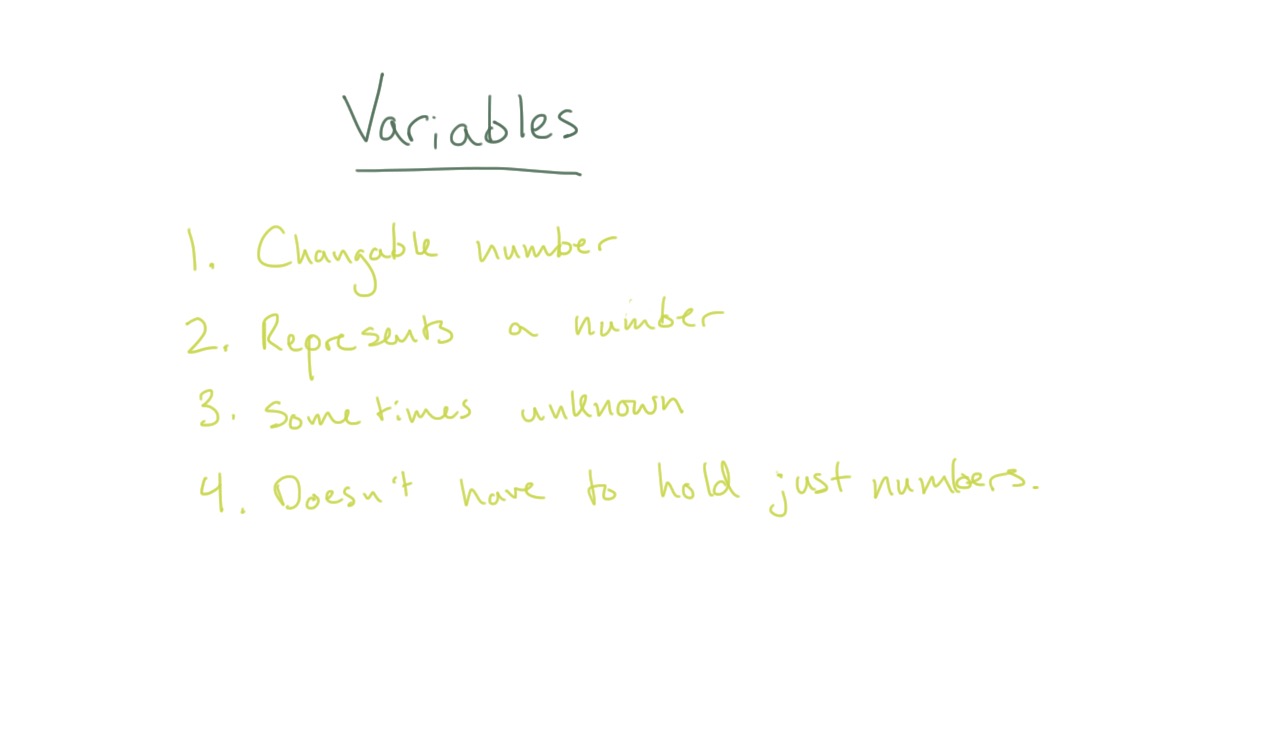 Variables
1. Changable number
2. Represents a number
3. Sometimes unknown
4. Doesn't have to hold just numbers.